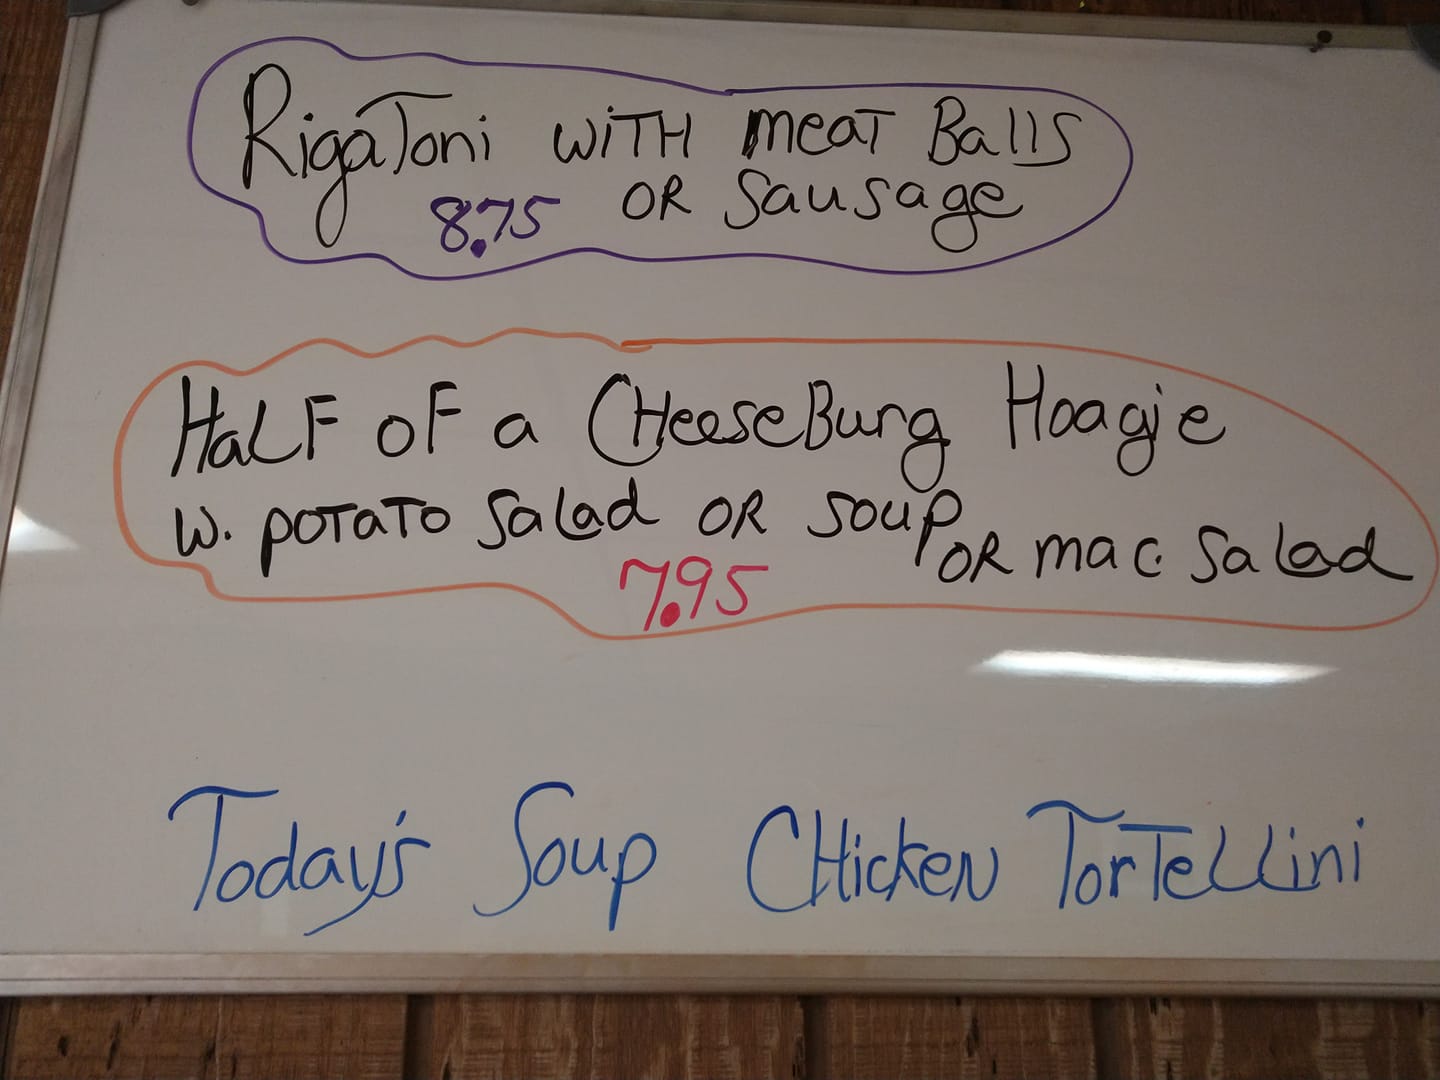 RigaToni WiTH meaT Balls
8.75 OR Sausage
HaLF oF a CHeeseBurg Hoagie
w. POTaTO Salad OR Soup OR mac. Salad
7.95
Today's Soup CHicken TorTeLLini